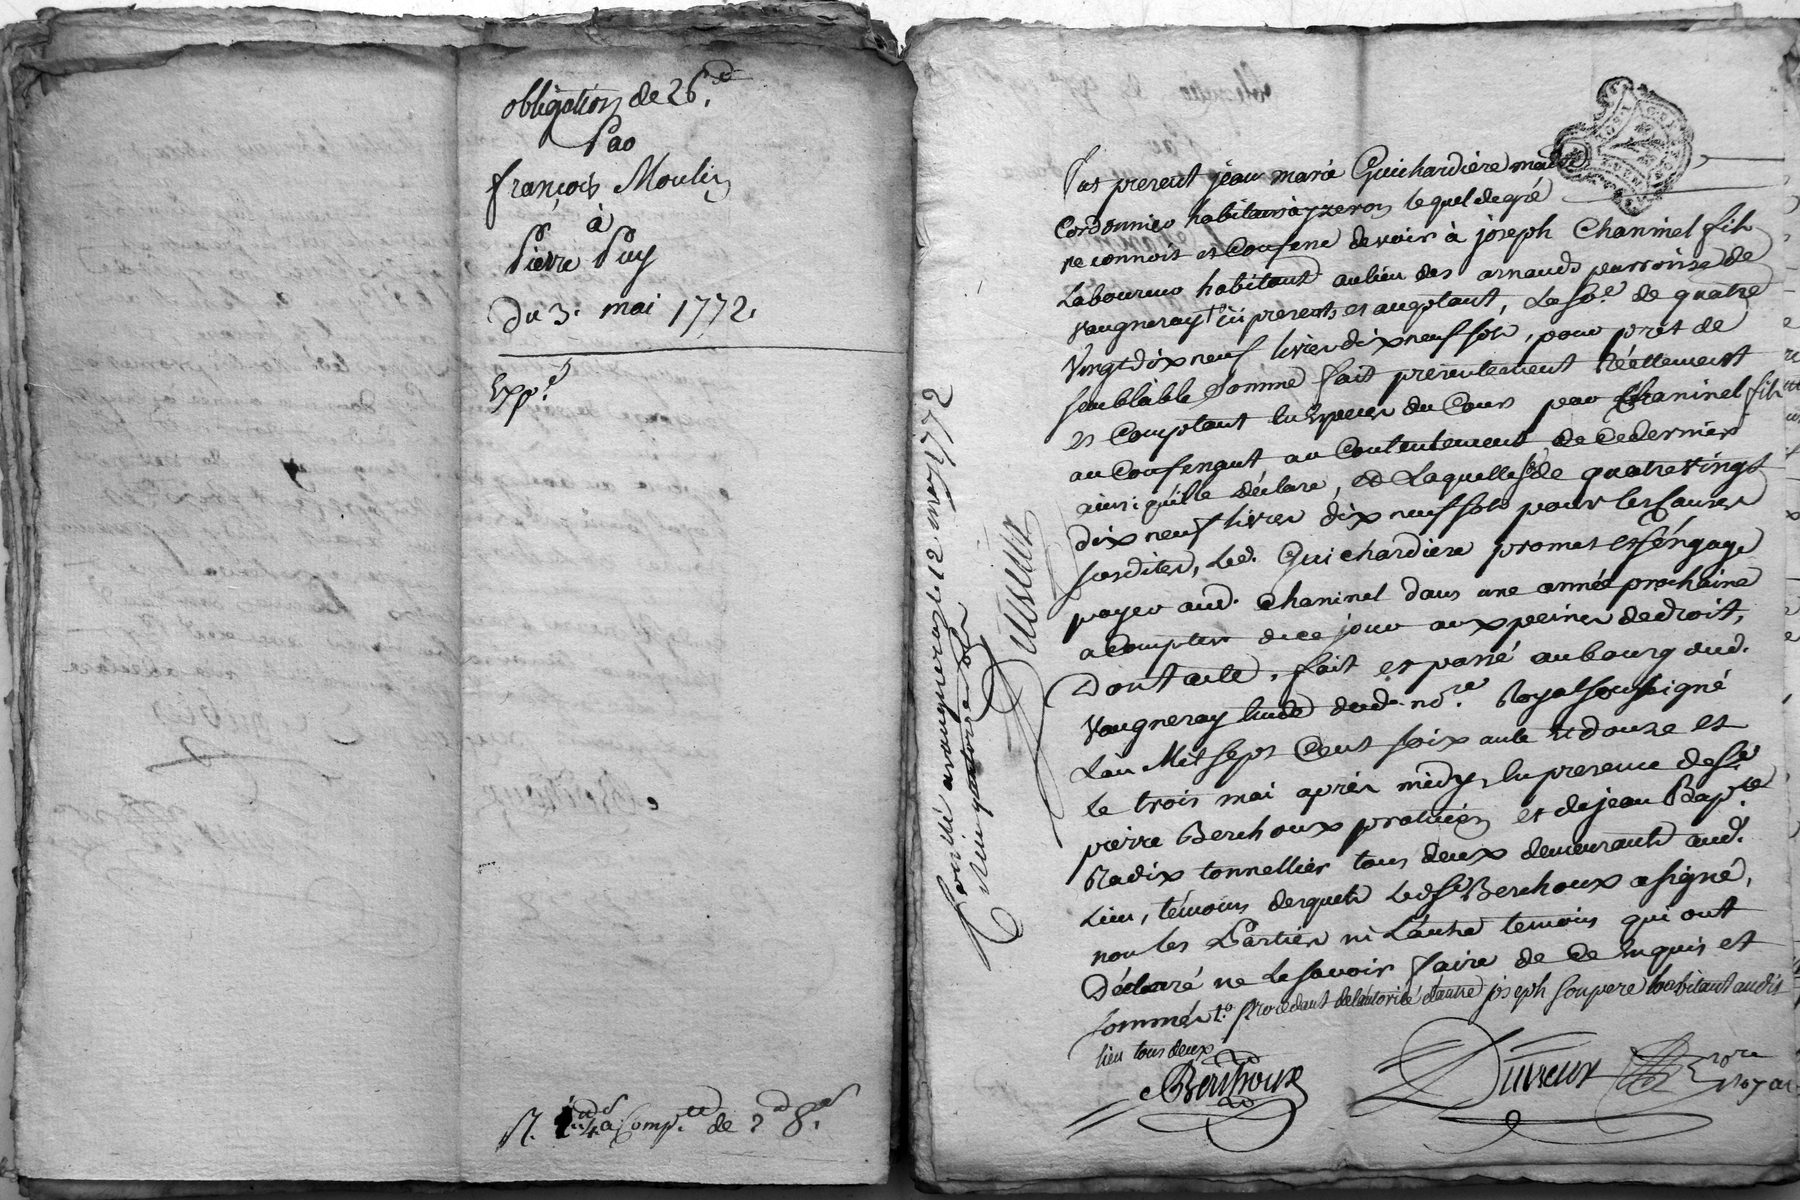 obligation de 26.#
Par
françois Moulin
à
Pierre Puy
Du 3. mai 1772.
Exp.é
Comp.té de
Controllé a vaugneray le 12 may 1772
Reçu quatorze sols
Duvieux
Fut present jean marie Guichardiere maitre
Cordonnier habitant à yzeron lequel de gré
reconnoit et Confesse devoir à joseph Chaninel fils
Laboureur habitant au lieu des arnauds parroisse de
vaugneray t° ici present et acceptant, La So.e de quatre
Vingt dix neuf livres dix neuf sols, pour prêt de
semblable Somme fait presentement Réellement
et Comptant En Especes du Cours par Chaninel fils
au Confessant au Contentement de Ce dernier
ainsi qu'il le déclare, Et Laquelle So de quatre vingt
dix neuf livres dix neuf sols pour les Causes
susdites, Led. Guichardiere promet et s'éngage
payer aud. Chaninel dans une année prochaine
a Compter de ce jour aux peines de droit,
Dont acte, fait et passé au bourg dud.
Vaugneray Etude dud. no.re Royal soussigné
L'an Mil sept Cent soixante Et douze et
le trois mai après midy, En presence de S.r
pierre Berchoux praticien et de jean Bap.te
Radix tonnellier tous deux demeurants aud.
Lieu, témoins desquels Led. S.r Berchoux a signé,
non les Parties ni L'autre temoin qui ont
Déclaré ne le savoir faire de Ce Enquis et
sommés t° procedant de l'autorité d'autre joseph son pere habitant audit
lieu tous deux
Berchoux
Duvieux no.re royal